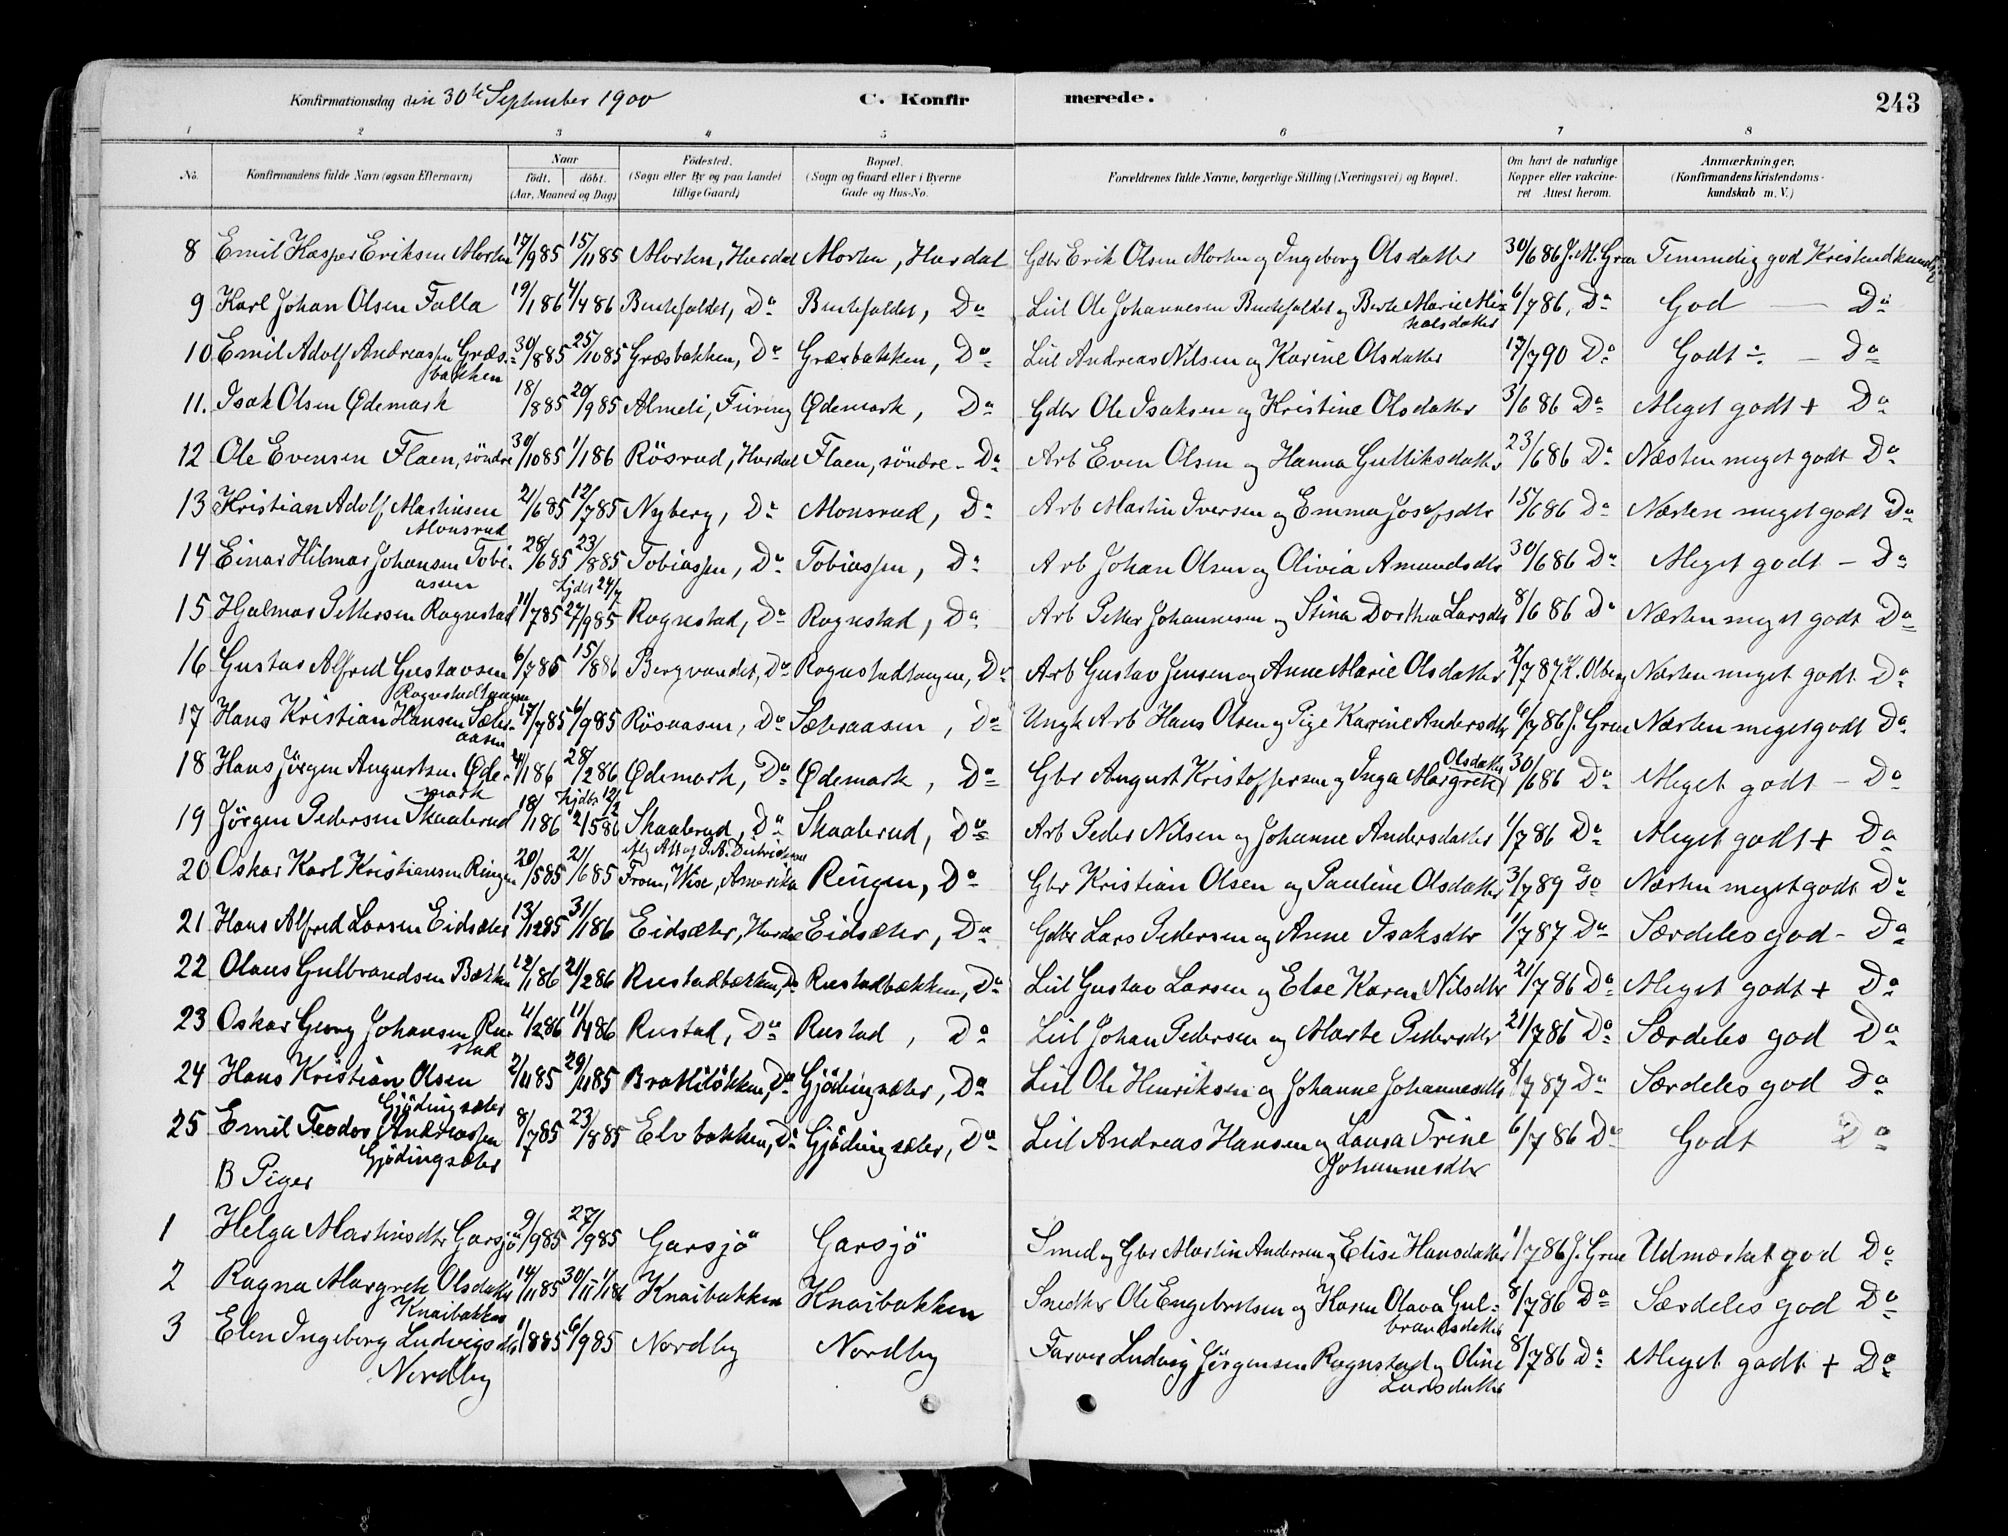 Konfirmationsdag den 30te September 1900 C. Konfirmerede. 243
1 2 3 4 5 6 7 8
No. Konfirmandens fulde Navn (ogsaa Efternavn) Naar født. døbt. (Aar, Maaned og Dag) Fødested. (Sogn eller By og paa Landet tillige Gaard) Bopæl. (Sogn og Gaard eller i Byerne Gade og Hus-No. Forældrenes fulde Navne, borgerlige Stilling (Næringsvei) og Bopæl. Om havt de naturlige Kopper eller vakcineret Attest herom. Anmærkninger. (Konfirmandens Kristendomskundskab m. V.)
8 Emil Kasper Eriksen Morten 17/9 85 15/11 85 Morten, Hurdal Morten, Hurdal Gdbr Erik Olsen Morten og Ingeborg Olsdatter 30/6 86 J. M. Grue Temmelig god Kristendkundsk
9 Karl Johan Olsen Falla 19/1 86 4/4 86 Do Do Leil Ole Johannesen og Berte Marie Mikkelsdatter 6/7 86, Do God — Do
10 Emil Adolf Andreassen Græsbakken 30/8 85 25/10 85 Græsbakken, Do Græsbakken, Do Leil Andreas Nilsen og Karine Olsdatter 17/7 90 Do Godt ÷ — Do
11. Isak Olsen Ødemark 18/8 85 20/9 85 Almeli, Furing Ødemark, Do Gdbr Ole Isaksen og Kristine Olsdatter 3/6 86 Do Meget godt + Do
12 Ole Evensen Flaen, søndre 30/10 85 1/1 86 Rösrud, Hurdal Flaen, søndre - Do Arb Even Olsen og Hanna Gulliksdatter 23/6 86 Do Næsten meget godt Do
13 Kristian Adolf Martinsen Monsrud 21/6 85 12/7 85 Nyberg, Do Monsrud, Do Arb Martin Iversen og Emma Josefsdtr 15/6 86 Do Næsten meget godt Do
14 Einar Hilmar Johansen Tobiasen 28/6 85 23/8 85 Tobiassen, Do Tobiassen, Do Arb Johan Olsen og Olivia Amundsdtr 30/6 86 Do Meget godt - Do
15 Hjalmar Pettersen Rognstad 11/7 85 hjdbt 24/7 27/9 85 Rognstad, Do Rognstad, Do Arb Petter Johannesen og Stina Dorthea Larsdtr 8/6 86 Do Næsten meget godt Do
16 Gustav Alfred Gustavsen Rognstadtangen 6/7 85 15/8 86 Bergvandet, Do Rognstadtangen, Do Arb Gustav Jensen og Anne Marie Olsdatter 2/7 87 K. Olberg Næsten meget godt Do
17 Hans Kristian Hansen Sæteraasen 17/7 85 6/9 85 Rösaasen, Do Sæteraasen, Do Ungk Arb Hans Olsen og Pige Karine Andersdtr 6/7 86 J. Grue Næsten meget godt Do
18 Hans Jörgen Augustsen Ødemark 24/1 86 28/2 86 Ødemark, Do Ødemark, Do Gbr August Kristoffersen og Inga Margrete Olsdatter 30/6 86 Do Meget godt - Do
19 Jörgen Pedersen Skaalerud 18/1 86 hjdbt 12/2 2/5 86 Skaalerud, Do Skaalerud, Do Arb Peder Nilsen og Johanne Andersdatter 1/7 86 Do Meget godt + Do
20 Oskar Karl Kristiansen Ringen 20/5 85 21/6 85 From, Wisc, Amerika Ringen, Do Gbr Kristian Olsen og Pauline Olsdatter 3/7 89 Do Næsten meget godt Do
21 Hans Alfred Larsen Eidsæter 13/12 85 31/1 86 Eidsæter, Hurdal Eidsæter, Do Gdbr Lars Pedersen og Anne Isaksdtr 1/7 87 Do Særdeles god - Do
22 Olaus Gulbrandsen Bækken 12/1 86 21/2 86 Rustadbækken, Do Rustadbækken, Do Leil Gustav Larsen og Else Karen Nilsdtr 21/7 86 Do Meget godt + Do
23 Oskar Georg Johansen Rustad 4/2 86 11/4 86 Rustad, Do Rustad, Do Leil Johan Pedersen og Marte Pedersdtr 21/7 86 Do Særdeles god Do
24 Hans Kristian Olsen Gjödingsæter 2/11 85 29/11 85 Bratlilökken, Do Gjödingsæter, Do Leil Ole Henriksen og Johanne Johannesdtr 8/7 87 Do Særdeles god Do
25 Emil Teodor Andreassen Gjödingsæter 8/7 85 23/8 85 Elvbakken, Do Gjödingsæter, Do Leil Andreas Hansen og Laura Trine Johannesdtr 6/7 86 Do Godt Do
B Piger
1 Helga Martinsdtr Garsjö 9/9 85 27/9 85 Garsjö Garsjö Smed og Gbr Martin Andersen og Elise Hansdatter 1/7 86 J. Grue Udmærket god Do
2 Ragna Margrete Olsdatter Knaibakken 14/11 85 30/11 1/1 86 Knaibakken Knaibakken Snedker Ole Engebretsen og Karen Olava Gulbrandsdatter 8/7 86 Do Særdeles god Do
3 Elen Ingeborg Ludvigsdtr Nordby 1/8 85 6/9 85 Nordby Nordby Farver Ludvig Jörgensen Rognstad og Oline Larsdatter 8/7 86 Do Meget godt + Do